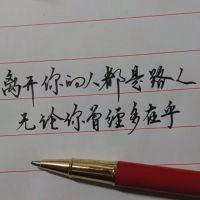 离开你的人都是路人
无论你曾经多在乎